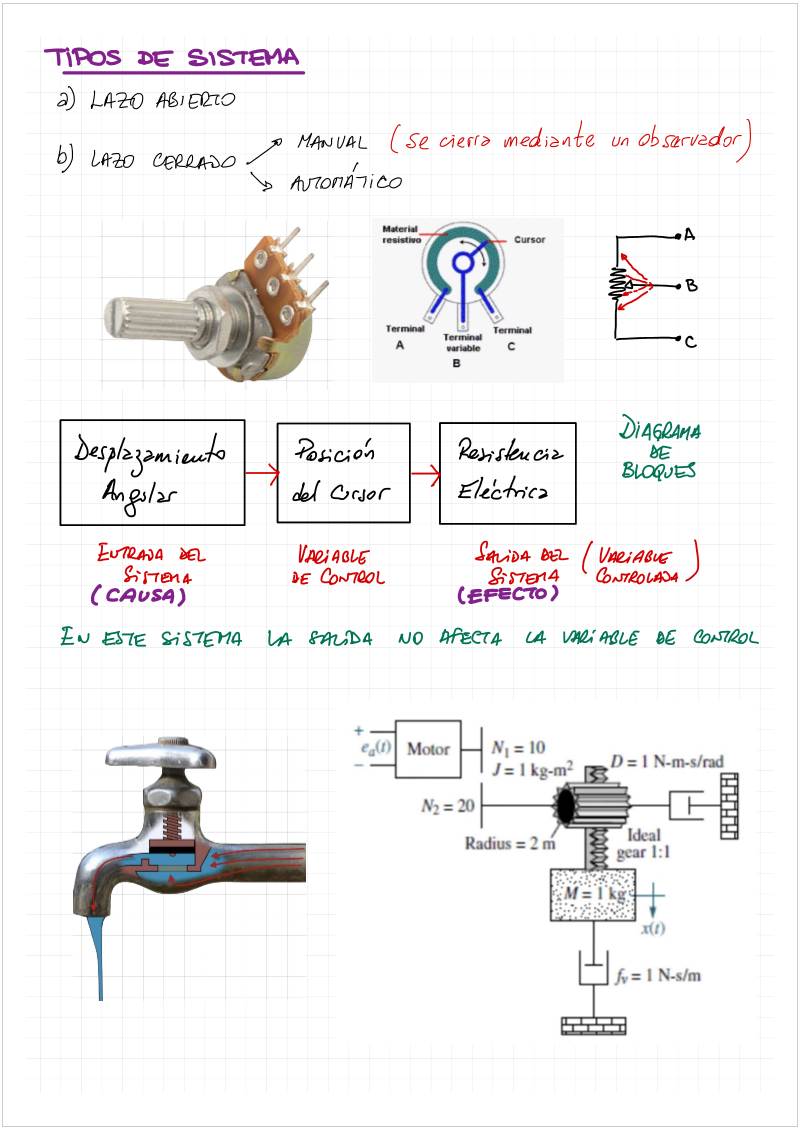 TIPOS DE SISTEMA
a) LAZO ABIERTO
b) LAZO CERRADO
MANUAL (Se cierra mediante un Observador)
AUTOMÁTICO
Material
resistivo
Cursor
Terminal
A
Terminal
variable
B
Terminal
C
A
B
C
Desplazamiento
Angular
Posición
del Cursor
Resistencia
Eléctrica
DIAGRAMA
DE
BLOQUES
ENTRADA DEL
SISTEMA
(CAUSA)
VARIABLE
DE CONTROL
SALIDA DEL
SISTEMA
(EFECTO)
(VARIABLE
CONTROLADA)
EN ESTE SISTEMA LA SALIDA NO AFECTA LA VARIABLE DE CONTROL
+
eₐ(t)
−
Motor
N₁ = 10
J = 1 kg-m²
D = 1 N-m-s/rad
N₂ = 20
Radius = 2 m
Ideal
gear 1:1
M = 1 kg
x(t)
fᵥ = 1 N-s/m